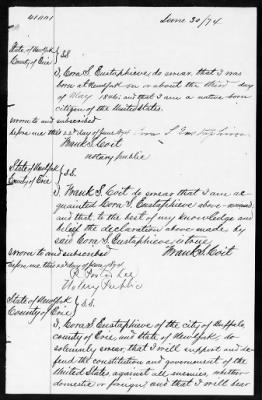 41001
June 30/74
State of New York } S.S.
County of Erie
I, Cora S. Eustaphieve, do swear, that I was
born at New York on or about the third day
of May 1846; and that I am a native born
citizen of the United States.
Sworn to and subscribed
before me this 22d day of June
Frank S. Coit
notary public
State of New York } S.S.
County of Erie
I, Frank S. Coit do swear that I am ac-
quainted Cora S. Eustaphieve above-named
and that, to the best of my knowledge and
belief the declaration above made by
said Cora S. Eustaphieve is true,
Sworn to and subscribed Frank S. Coit
before me this 22d day of June
R. Porter Lee
Notary Public
State of New York } S.S.
County of Erie
I, Cora S. Eustaphieve of the city of Buffalo,
county of Erie, and state of New York, do
solemnly swear, that I will support and de-
fend the constitution and government of the
United States against all enemies, whether
domestic or foreign; and that I will bear